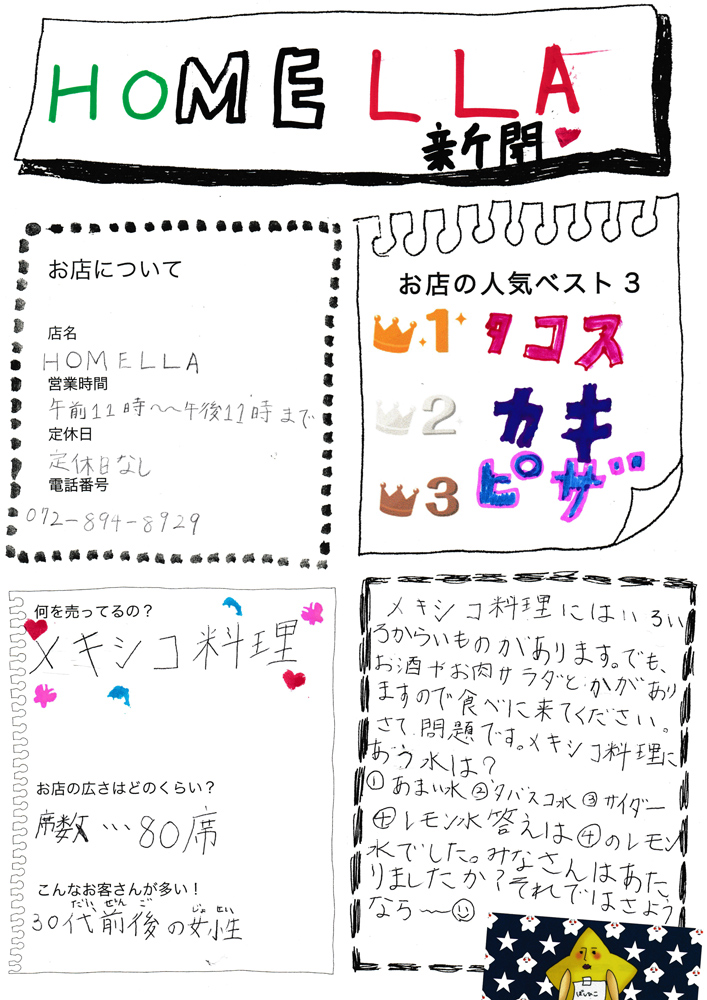 HOMELLA
新聞
お店について
店名
HOMELLA
営業時間
午前11時〜午後11時まで
定休日
定休日なし
電話番号
072-894-8929
お店の人気ベスト3
1 タコス
2 カキ
3 ピザ
何を売ってるの？
メキシコ料理
お店の広さはどのくらい？
席数…80席
こんなお客さんが多い！
だい ぜん ご じょ せい
30代前後の女性
メキシコ料理にはいろい
ろからいものがあります。でも、
お酒やお肉サラダとかがあり
ますので食べに来てください。
さて問題です。メキシコ料理に
あう水は？
①あまい水②タバスコ水③サイダー
④レモン水答えは④のレモン
水でした。みなさんはあた
りましたか？それではさよう
なら〜